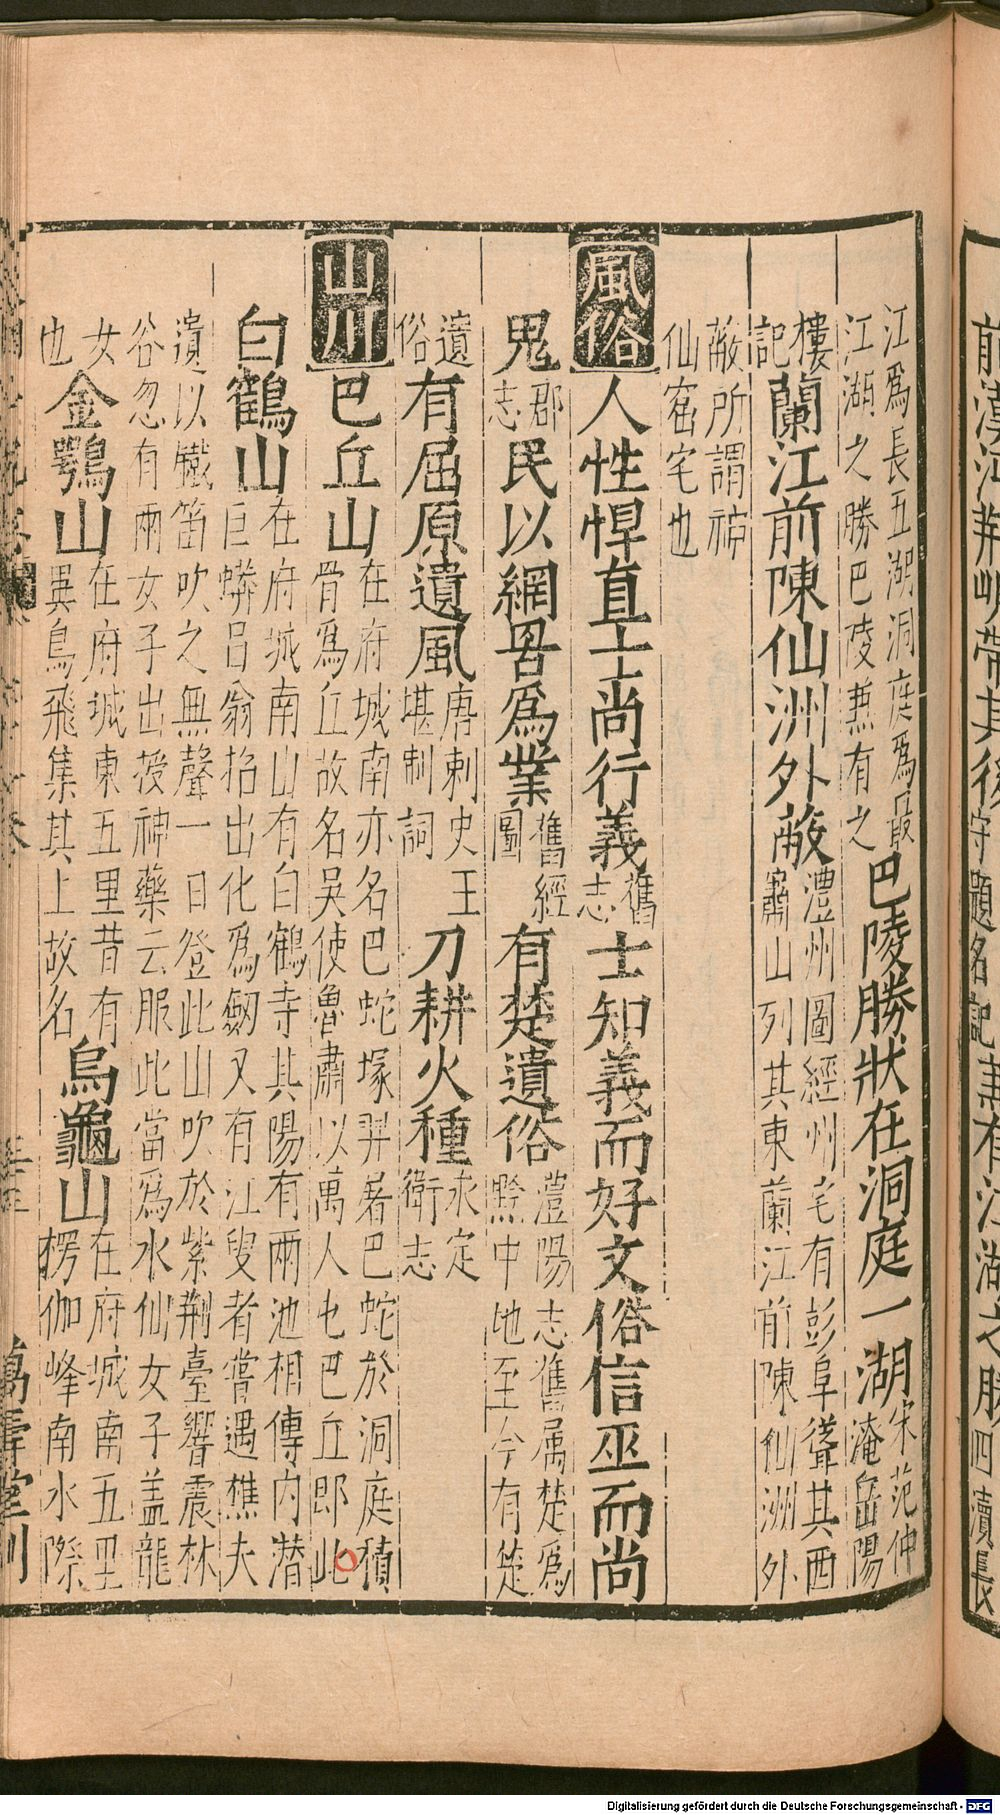 前漢沔荆岷帶其後守題名記兼有江湖之勝四瀆長
江爲長五湖洞庭爲最
江湖之勝巴陵兼有之
巴陵勝狀在洞庭一湖
宋范仲
淹岳陽
樓
記
蘭江前陳仙洲外蔽
澧州圖經州宅有彭阜聳其西
關山列其東蘭江前陳仙洲外
蔽所謂神
仙窟宅也
風俗
人性悍直士尚行義
舊
志
士知義而好文俗信巫而尚
鬼
郡
志
民以網罟爲業
舊經
圖
有楚遺俗
澧陽志舊属楚爲
黔中地至今有楚
遺
俗
有屈原遺風
唐刺史王
堪制詞
刀耕火種
永定
衛志
山川
巴丘山
在府城南亦名巴蛇塚羿屠巴蛇於洞庭積
骨爲丘故名吳使魯肅以萬人屯巴丘即此
白鶴山
在府城南山有白鶴寺其陽有兩池相傳内潜
巨蟒吕翁招出化爲劔又有江叟者嘗遇樵夫
遺以鐵笛吹之無聲一日登此山吹於紫荆臺響震林
谷忽有兩女子出授神藥云服此當爲水仙女子盖龍
女
也
金鶚山
在府城東五里昔有
異鳥飛集其上故名
烏龜山
在府城南五里
楞伽峰南水際
萬壽堂刊
Digitalisierung gefördert durch die Deutsche Forschungsgemeinschaft - DFG